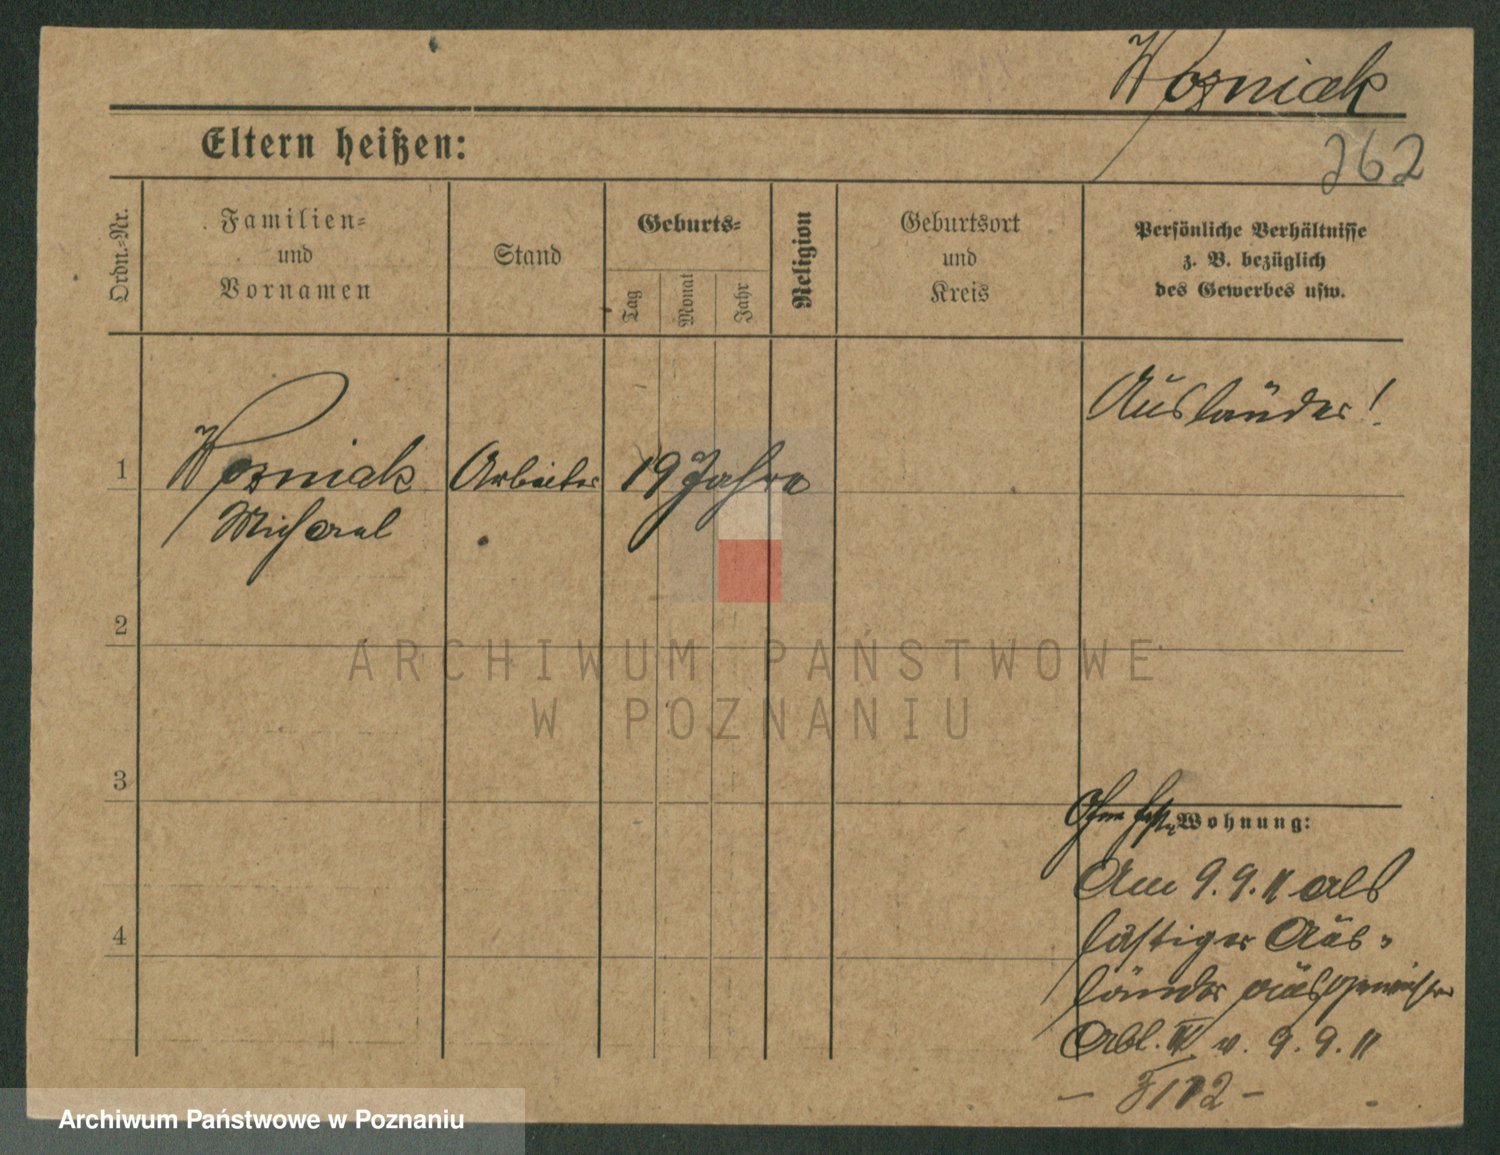 Wozniak
Eltern heißen:
262
Ordn.=Nr.
Familien=
und
Vornamen
Stand
Geburts=
Tag
Monat
Jahr
Religion
Geburtsort
und
Kreis
Persönliche Verhältnisse
z. B. bezüglich
des Gewerbes usw.
Ausländer!
1
Wozniak
Michael
Arbeiter
19 Jahre
2
3
4
Ohne feste Wohnung:
Am 9. 9. 11 als
lästiger Aus=
länder ausgewiesen
Abl. IV v. 9. 9. 11
ARCHIWUM PAŃSTWOWE
W POZNANIU
Archiwum Państwowe w Poznaniu